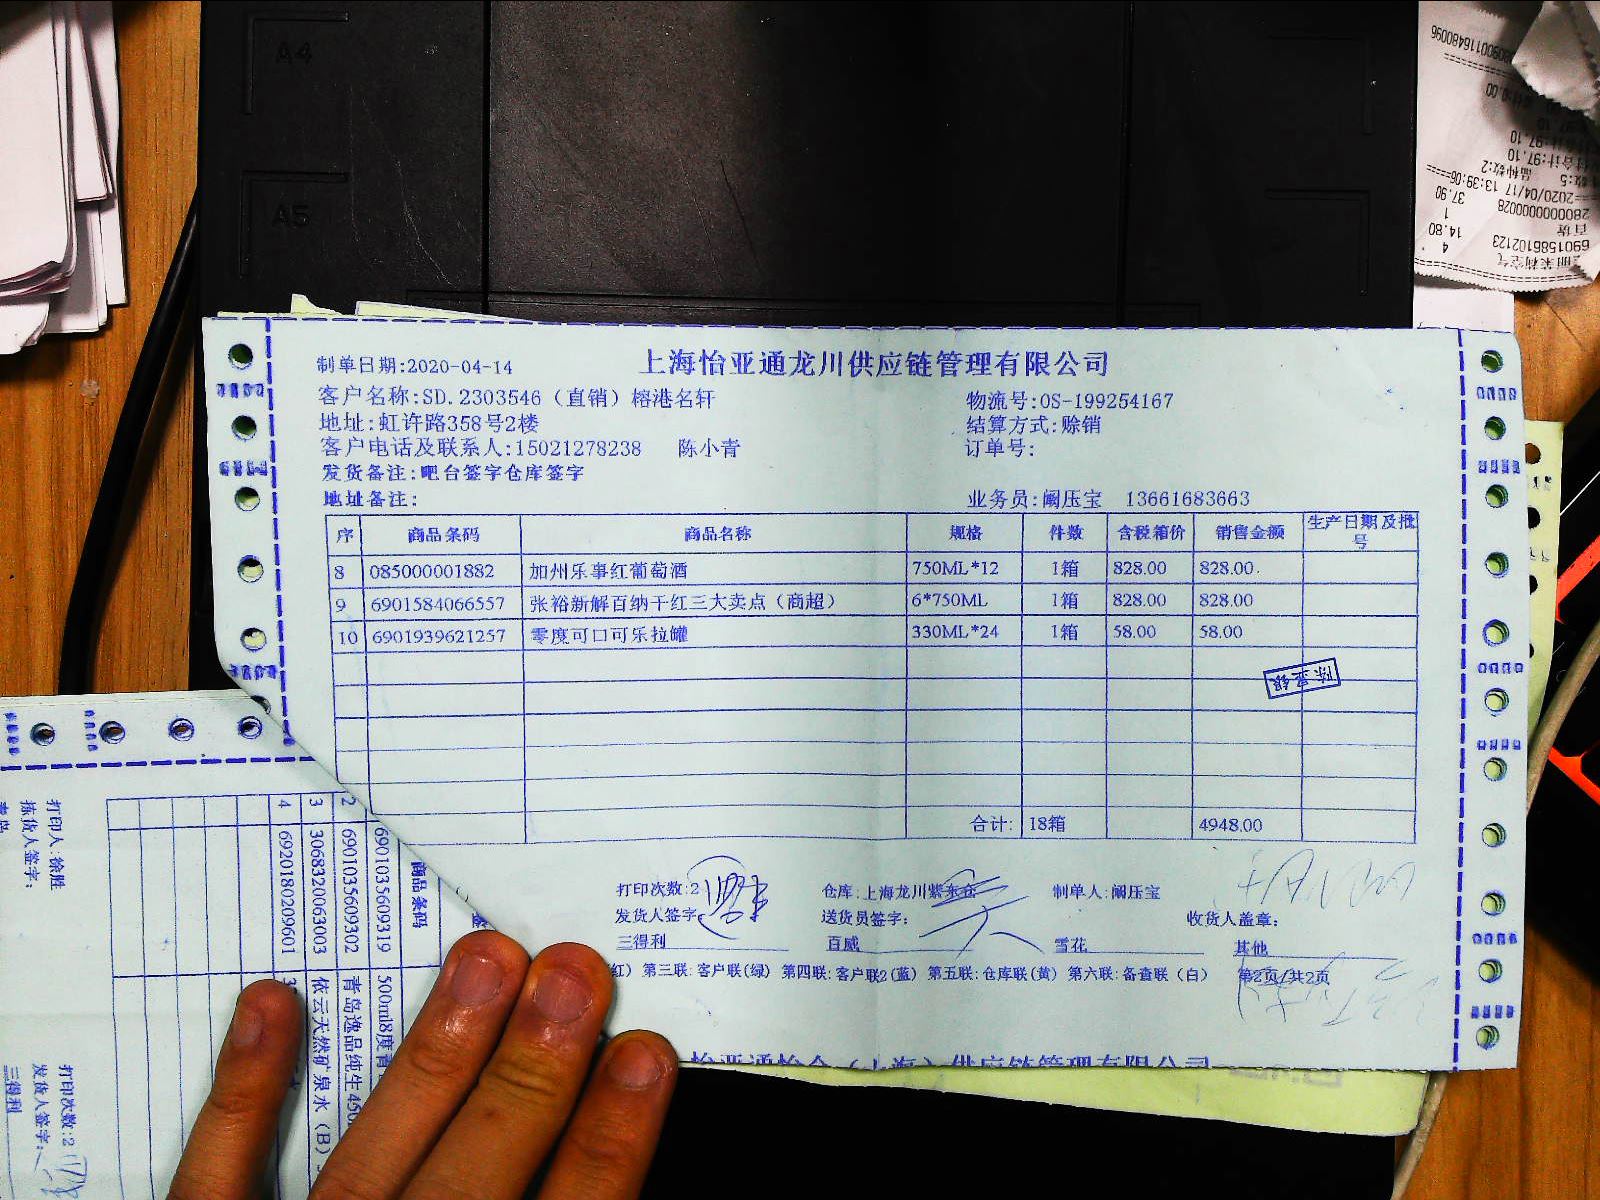 A4
A5
制单日期:2020-04-14
上海怡亚通龙川供应链管理有限公司
客户名称:SD.2303546（直销）榕港名轩
物流号:OS-199254167
地址:虹许路358号2楼
结算方式:赊销
客户电话及联系人:15021278238 陈小青
订单号:
发货备注:吧台签字仓库签字
地址备注:
业务员:阚压宝 13661683663
序 商品条码 商品名称 规格 件数 含税箱价 销售金额 生产日期及批号
8 085000001882 加州乐事红葡萄酒 750ML*12 1箱 828.00 828.00
9 6901584066557 张裕新解百纳干红三大卖点（商超） 6*750ML 1箱 828.00 828.00
10 6901939621257 零度可口可乐拉罐 330ML*24 1箱 58.00 58.00
合计: 18箱 4948.00
打印次数:2 仓库:上海龙川紫东仓 制单人:阚压宝
发货人签字: 送货员签字: 收货人盖章:
三得利 百威 雪花 其他
红）第三联:客户联(绿) 第四联:客户联2(蓝) 第五联:仓库联(黄) 第六联:备查联（白） 第2页/共2页
怡亚通怡合（上海）供应链管理有限公司
商品条码
6901035609319 500ml8度青
2 6901035609302 青岛逸品纯生450
3 3068320063003 依云天然矿泉水（B）
4 6920180209601
打印人:徐胜
拣货人签字:
打印次数:2
发货人签字:
三得利
6901586102123
百货
14.80 1 4
2800000000028
37.90 1
2020/04/17 13:39:06
品种数:2
合计:97.10